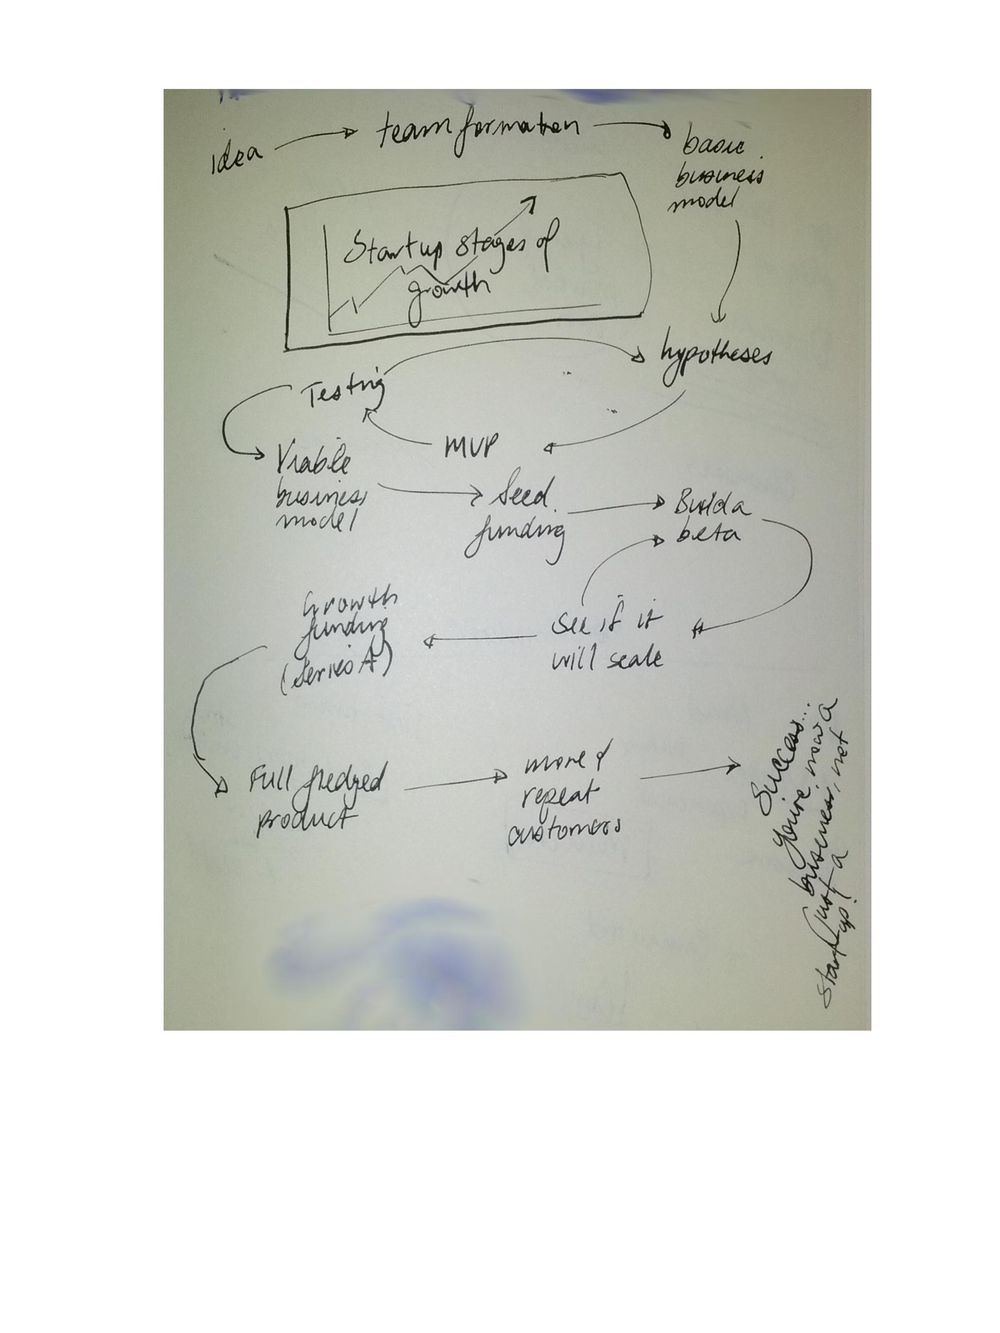 idea
team formation
basic
business
model
Startup stages of
growth
hypotheses
Testing
MVP
Viable
business
model
Seed
funding
Build a
beta
see if it
will scale
Growth
funding
(Series A)
Full fledged
product
more &
repeat
customers
Success...
you're now a
business, not
just a
startup!